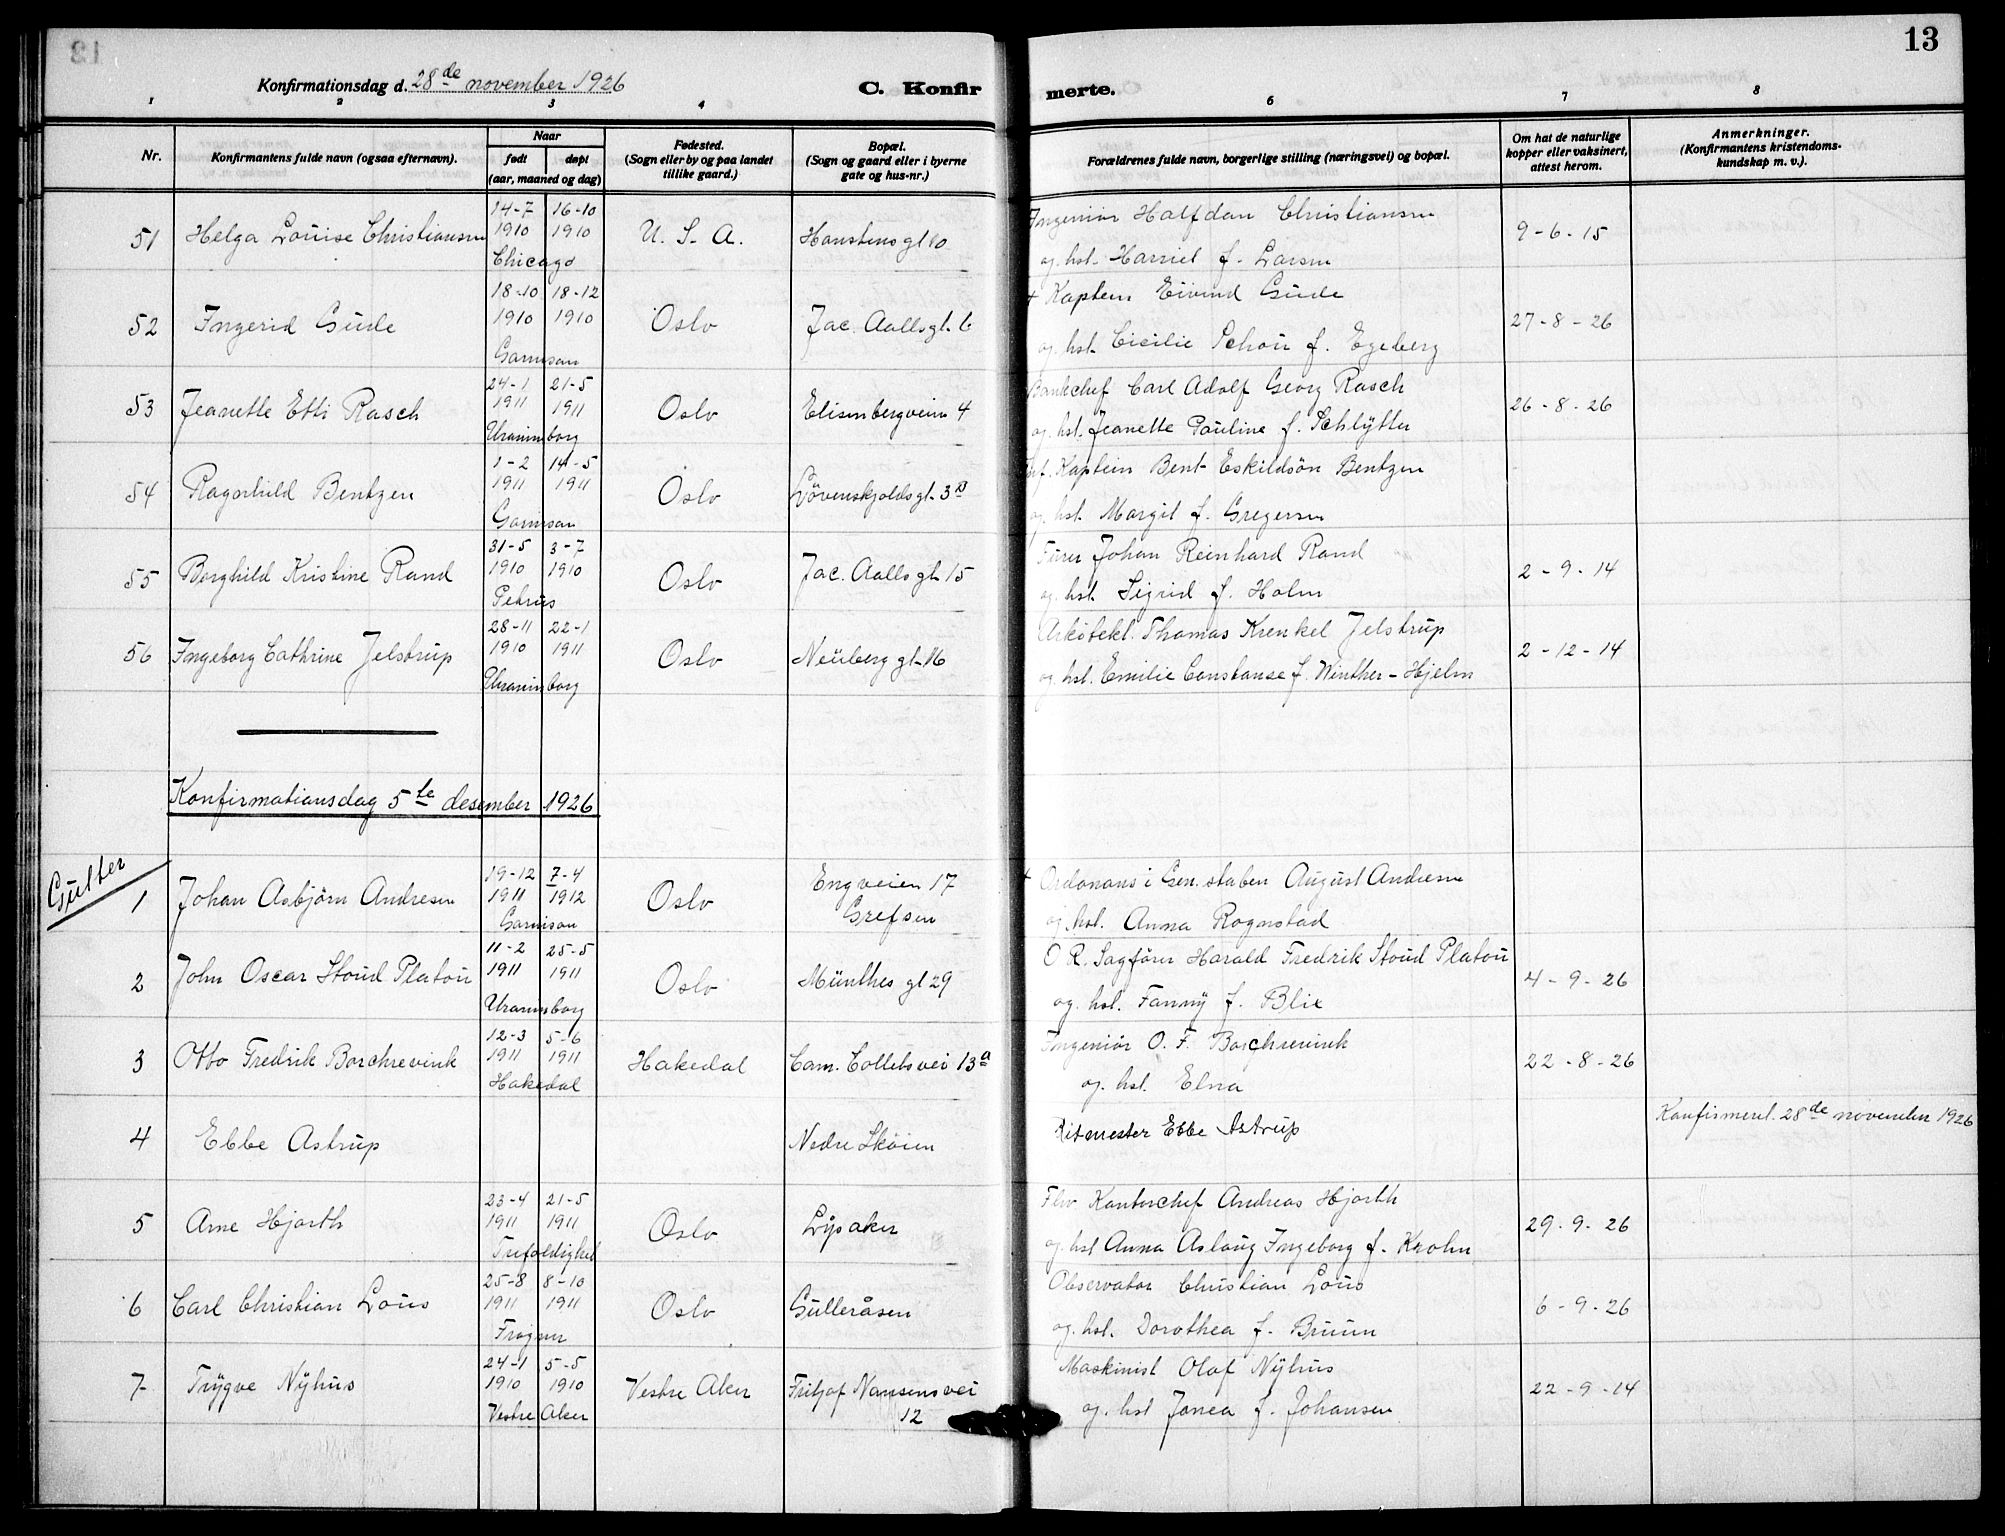 13
Konfirmationsdag d. 28de november 1926
C. Konfirmerte.
1 2 3 4 5 6 7 8
Nr.
Konfirmantens fulde navn (ogsaa efternavn).
Naar
født
døpt
(aar, maaned og dag)
Fødested.
(Sogn eller by og paa landet
tillike gaard.)
Bopæl.
(Sogn og gaard eller i byerne
gate og hus-nr.)
Forældrenes fulde navn, borgerlige stilling (næringsvei) og bopæl.
Om hat de naturlige
kopper eller vaksinert,
attest herom.
Anmerkninger.
(Konfirmantens kristendoms-
kundskap m. v.).
51 Helga Louise Christiansen 14-7 1910 16-10 1910 Chicago U. S. A. Hanstens gt 10 Ingeniör Halfdan Christiansen
og hst. Harriet f. Larsen 9-6-15
52 Ingerid Gude 18-10 1910 18-12 1910 Garnison Oslo Jac. Aalls gt. 6 + Kaptein Eivind Gude
og hst. Cicilie Schou f. Egeberg 27-8-26
53 Jeanette Etti Rasch 24-1 1911 21-5 1911 Uranienborg Oslo Elisenbergveien 4 Bankchef Carl Adolf Georg Rasch
og hst. Jeanette Pauline f. Schlytter 26-8-26
54 Ragnhild Bentzen 1-2 1911 14-5 1911 Garnison Oslo Lövenskjolds gt. 3 Kaptein Bent Eskildsön Bentzen
og hst. Margit f. Gregersen
55 Borghild Kristine Rand 31-5 1910 3-7 1910 Petrus Oslo Jac. Aalls gt. 15 Furer Johan Reinhard Rand
og hst. Sigrid f. Holm 2-9-14
56 Ingeborg Cathrine Jelstrup 28-11 1910 22-1 1911 Uranienborg Oslo Neuberg gt. 16 Arkitekt. Thomas Krenkel Jelstrup
og hst. Emilie Constanse f. Winther-Hjelm 2-12-14
Konfirmationsdag 5te desember 1926
Gutter
1 Johan Asbjörn Andresen 19-12 1911 7-4 1912 Garnison Oslo Engveien 17 Grefsen + Ordonans i Gen. staben August Andresen
og hst. Anna Rognstad
2 John Oscar Stoud Platou 11-2 1911 25-5 1911 Uranienborg Oslo Munthes gt 29 O R. Sagförer Harald Fredrik Stoud Platou
og. hst. Fanny f. Blix 4-9-26
3 Otto Fredrik Borchrevink 12-3 1911 5-6 1911 Hakedal Hakedal Cam. Colletsvei 13a Ingeniör O. F. Borchrevink
og. hst. Elna 22-8-26
4 Ebbe Astrup Nedre Sköien Ritmester Ebbe Astrup Konfirmert. 28de november 1926
5 Arne Hjorth 23-4 1911 21-5 1911 Trefoldighet Oslo Lysaker Fhv Kontorchef Andreas Hjorth
og hst Anna Aslaug Ingeborg f. Krohn 29.9.26
6 Carl Christian Lous 25-8 1911 8-10 1911 Frogner Oslo Gulleråsen Observator Christian Lous
og. hst. Dorothea f. Bruun 6-9-26
7 Trygve Nyhus 24-1 1910 5-5 1910 Vestre Aker Vestre Aker Fritjof Nansens vei 12 Maskinist Olaf Nyhus
og. hst Jonea f. Johansen 22-9-14